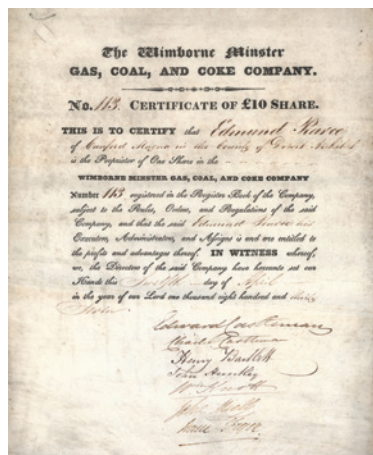 The Wimborne Minster
GAS, COAL, AND COKE COMPANY.
No. 163. CERTIFICATE OF £10 SHARE.
THIS IS TO CERTIFY that Edmund Pearce
of Canford Magna in the County of Dorset
is the Proprietor of One Share in the
WIMBORNE MINSTER GAS, COAL, AND COKE COMPANY
Number 163 registered in the Register Book of the Company,
subject to the Rules, Orders, and Regulations of the said
Company, and that the said Edmund Pearce his
Executors, Administrators, and Assigns is and are entitled to
the profits and advantages thereof. IN WITNESS whereof,
we, the Directors of the said Company have hereunto set our
Hands this Twelfth day of April
in the year of our Lord one thousand eight hundred and thirty
Edward Castleman
Charles Castleman
Henry Bartlett
John
Wm